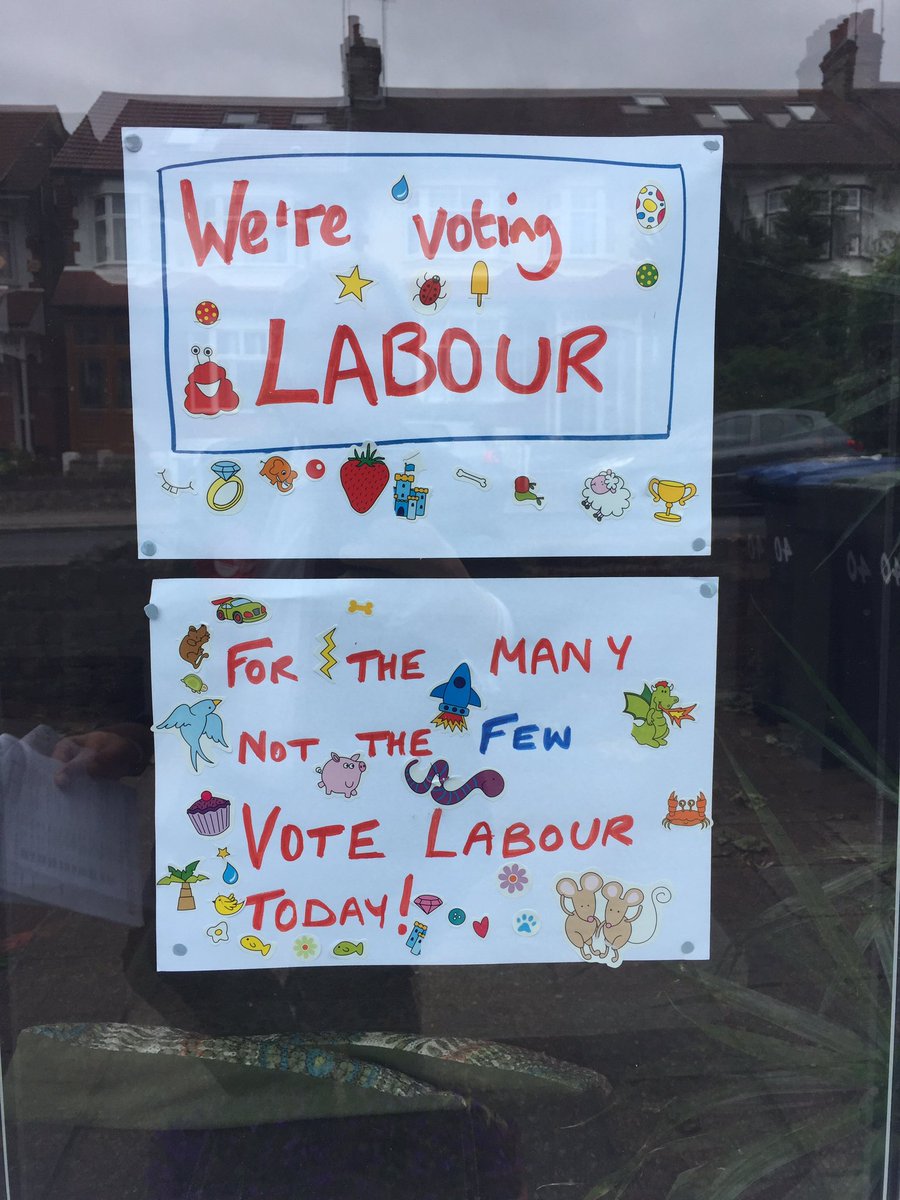 We're voting
LABOUR
FOR THE MANY
NOT THE FEW
VOTE LABOUR
TODAY!
40
40
40